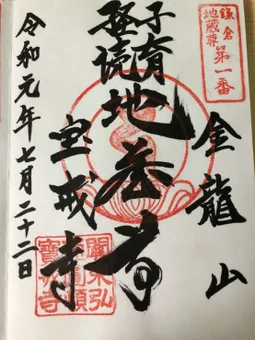 鎌倉
地蔵尊
第一番
金龍山
子育
経読
地蔵尊
宝戒寺
令和元年七月二十二日